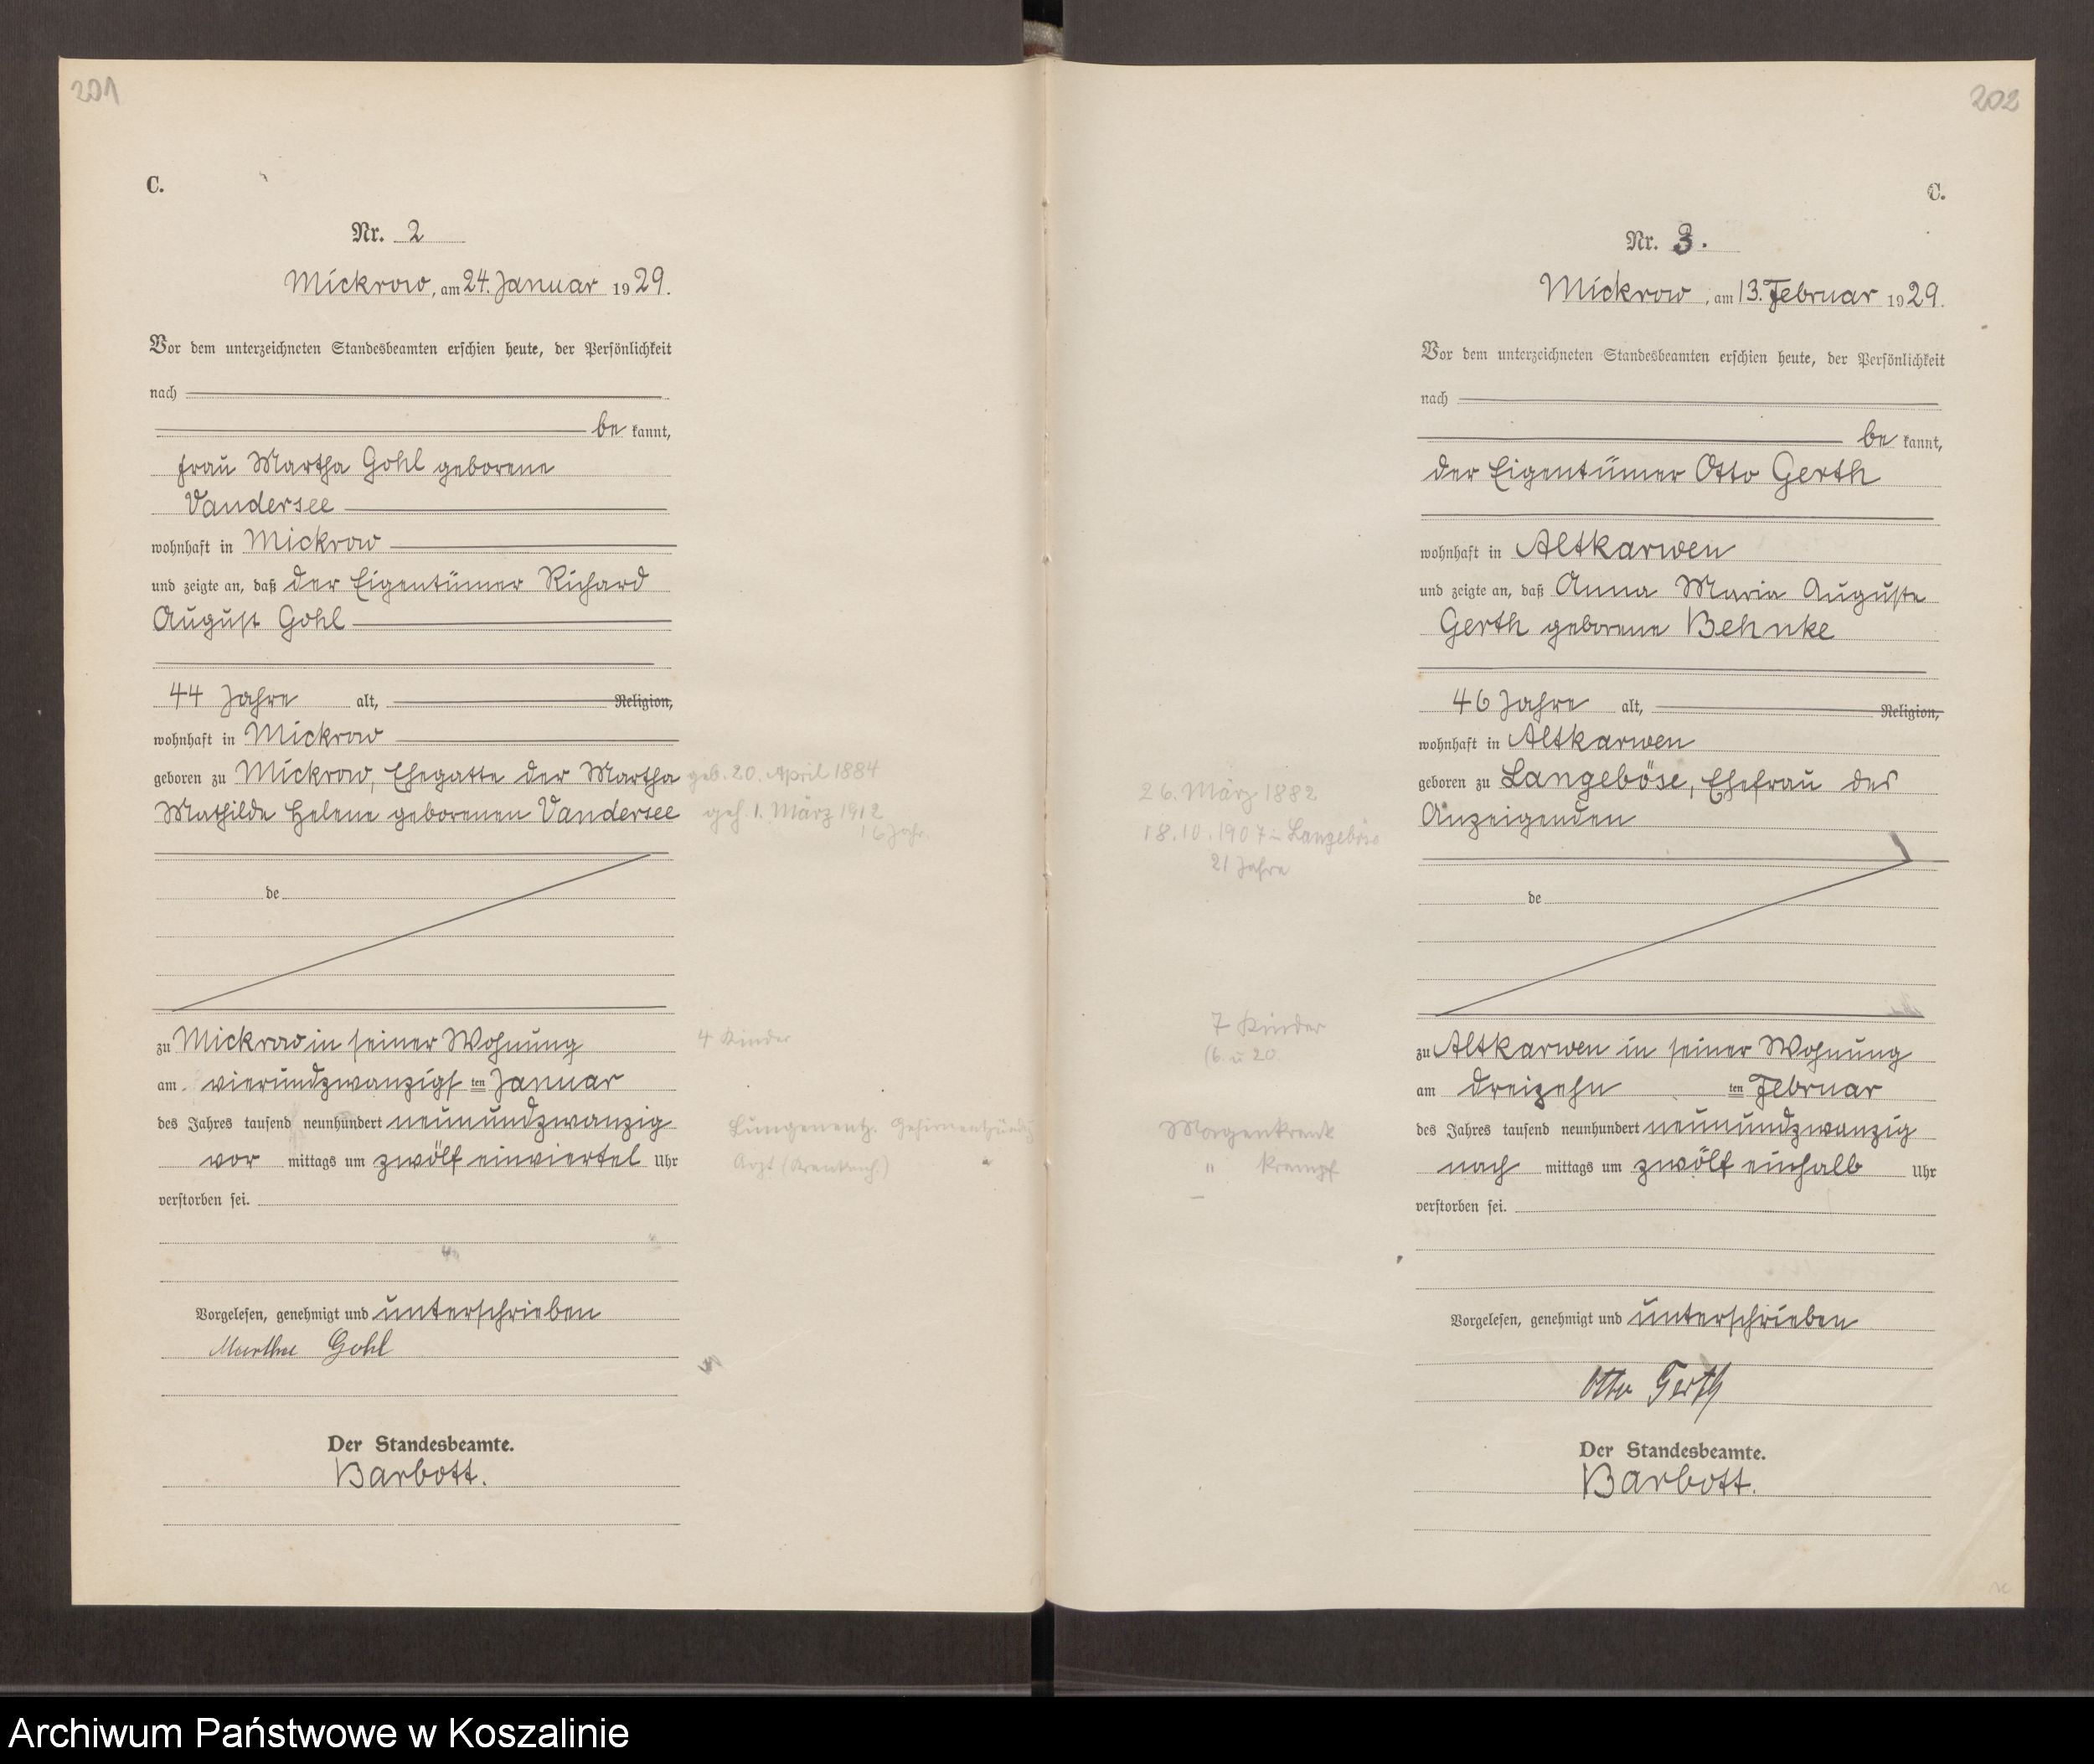 201
C.
Nr. 2
Mickrow, am 24. Januar 1929.
Vor dem unterzeichneten Standesbeamten erschien heute, der Persönlichkeit
nach
be kannt,
Frau Martha Gohl geborene
Vandersee
wohnhaft in Mickrow
und zeigte an, daß der Eigentümer Richard
August Gohl
44 Jahre alt, Religion,
wohnhaft in Mickrow
geboren zu Mickrow, Ehegatte der Martha
Mathilde Helene geborenen Vandersee
geb. 20. April 1884
geh. 1. März 1912
16 Jahr.
de
zu Mickrow in seiner Wohnung
4 Kinder
am vierundzwanzigs ten Januar
des Jahres tausend neunhundert neunundzwanzig
Lungenentz. Gehirnentzündg
vor mittags um zwölf einviertel Uhr
Arzt
verstorben sei.
Vorgelesen, genehmigt und unterschrieben
Martha Gohl
Der Standesbeamte.
Barbott.
202
C.
Nr. 3.
Mickrow, am 13. Februar 1929.
Vor dem unterzeichneten Standesbeamten erschien heute, der Persönlichkeit
nach
be kannt,
der Eigentümer Otto Gerth
wohnhaft in Altkarwen
und zeigte an, daß Anna Maria Auguste
Gerth geborene Behnke
46 Jahre alt, Religion,
wohnhaft in Altkarwen
geboren zu Langeböse, Ehefrau des
Anzeigenden
26. März 1882
18.10.1907 in Langeböse
21 Jahre
de
7 Kinder
(6. u 20.
zu Altkarwen in seiner Wohnung
am dreizehn ten Februar
des Jahres tausend neunhundert neunundzwanzig
Magenkrank
nach mittags um zwölf einhalb Uhr
" Krampf
verstorben sei.
Vorgelesen, genehmigt und unterschrieben
Otto Gerth
Der Standesbeamte.
Barbott.
Archiwum Państwowe w Koszalinie